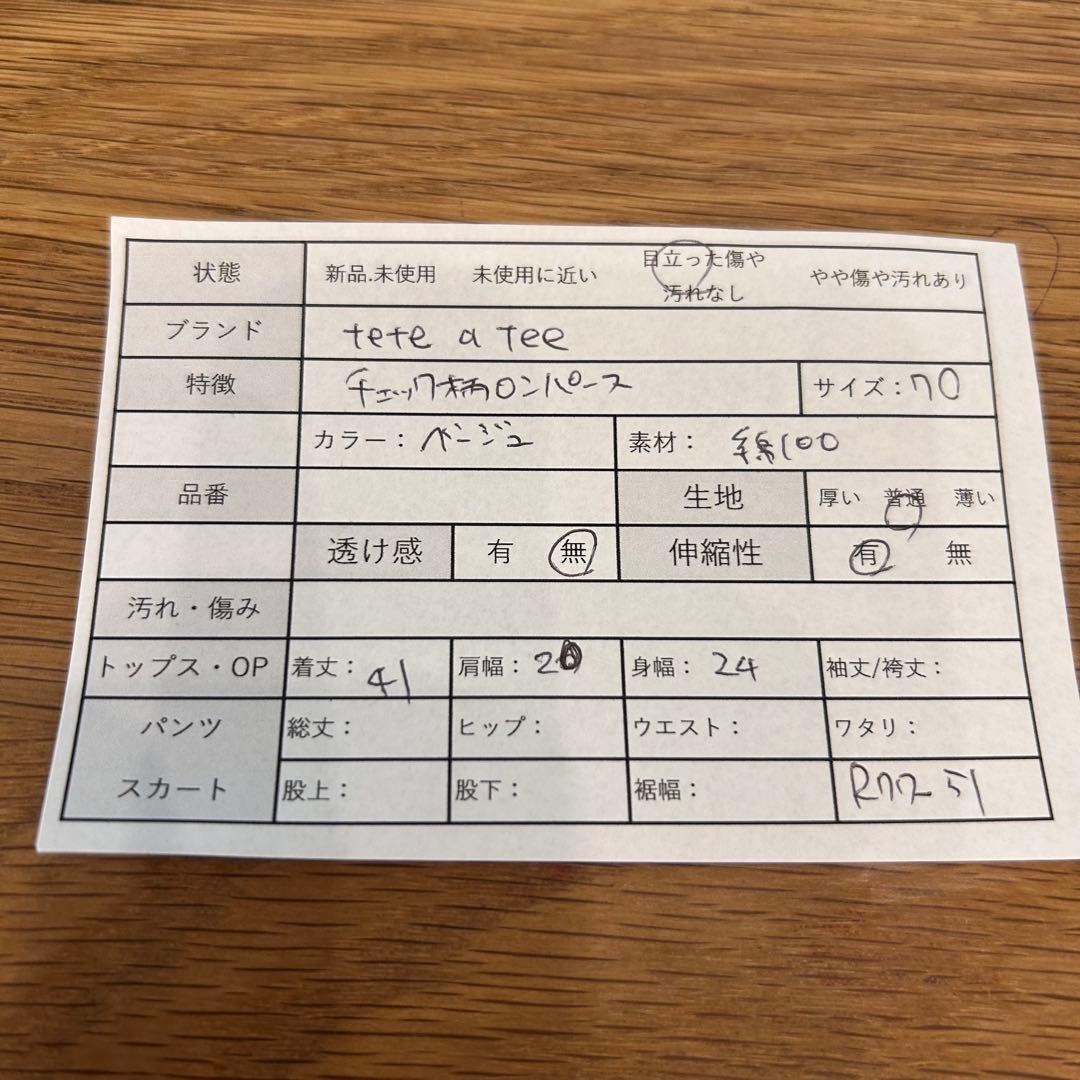 状態 新品.未使用 未使用に近い 目立った傷や汚れなし やや傷や汚れあり
ブランド tete a tee
特徴 チェック柄ロンパース サイズ：70
カラー：ベージュ 素材：綿100
品番 生地 厚い 普通 薄い
透け感 有 無 伸縮性 有 無
汚れ・傷み
トップス・OP 着丈：41 肩幅：20 身幅：24 袖丈/袴丈：
パンツ 総丈： ヒップ： ウエスト： ワタリ：
スカート 股上： 股下： 裾幅： R772-51